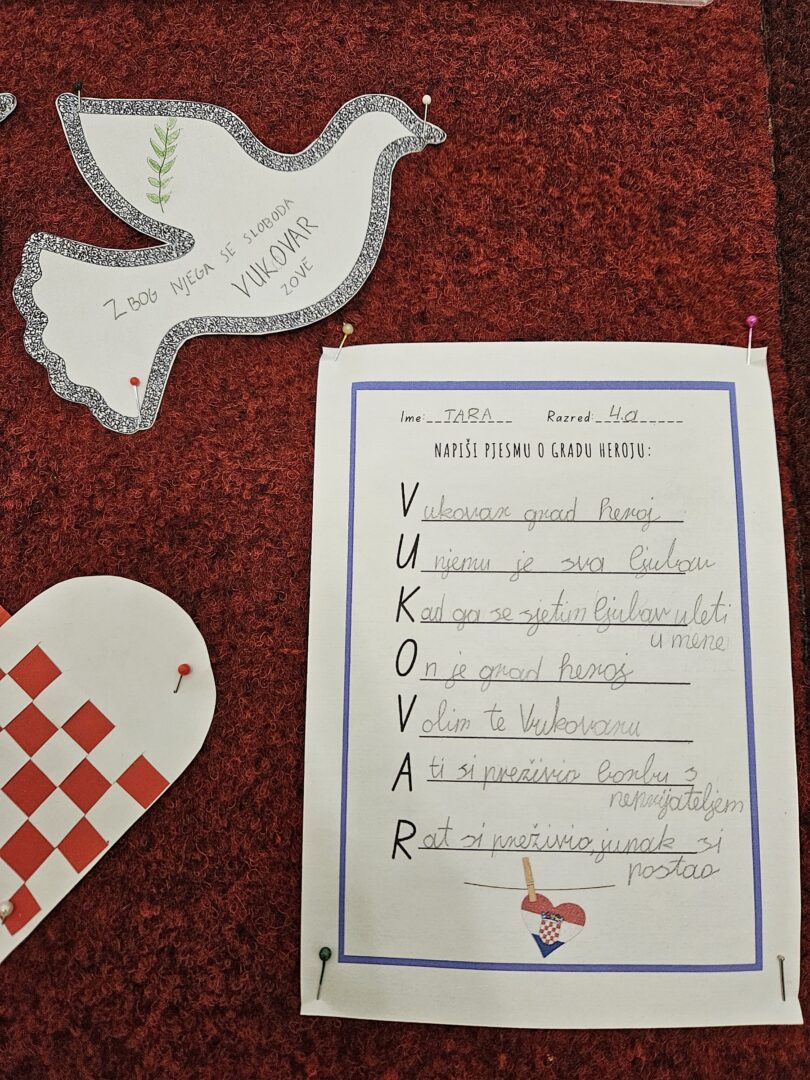 ZBOG NJEGA SE SLOBODA
VUKOVAR
ZOVE
Ime: TARA Razred: 4.a
NAPIŠI PJESMU O GRADU HEROJU:
Vukovar grad heroj
U njemu je sva ljubav
Kad ga se sjetim ljubav uleti
u mene
On je grad heroj
Volim te Vukovaru
A ti si preživio borbu s
neprijateljem
Rat si preživio, junak si
postao